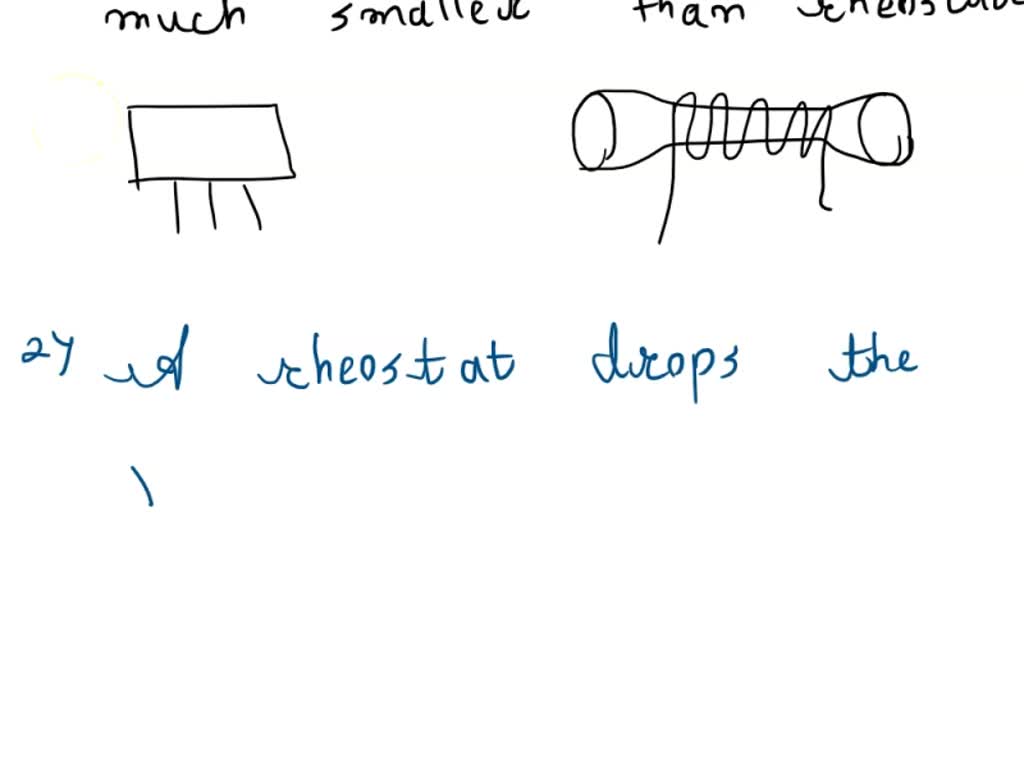 much smaller than rheostat
2) A rheostat drops the